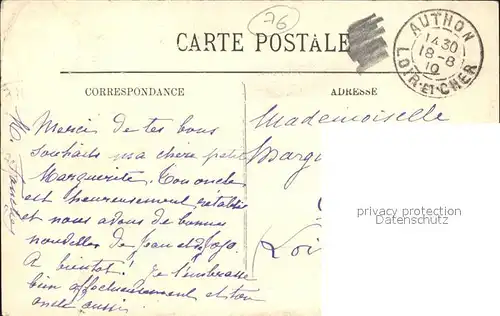 76
CARTE POSTALE
AUTHON
14 30
18-8
10
LOIR-ET-CHER
CORRESPONDANCE
ADRESSE
Merci de tes bons
souhaits ma chère petite
Marguerite. Ton oncle
est heureusement rétabli
et nous avons de bonnes
nouvelles de Jean et de
A bientôt! Je t'embrasse
bien affectueusement et ton
oncle aussi
Mademoiselle
Margu
Loi
privacy protection
Datenschutz